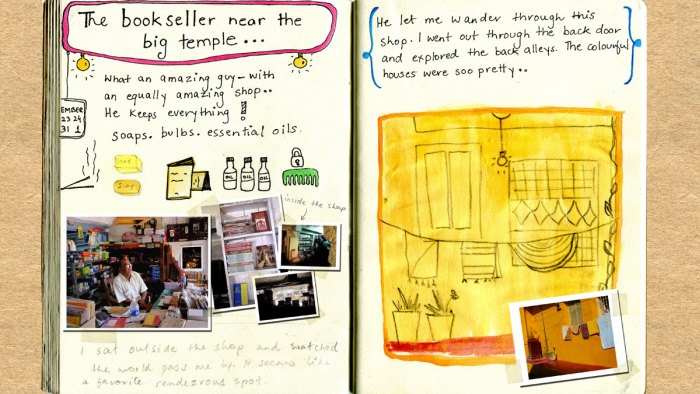 The bookseller near the
big temple...
What an amazing guy - with
an equally amazing shop..
He keeps everything!
soaps. bulbs. essential oils.
EMBER
23 24
31 1
OIL
OIL
OIL
inside the shop
I sat outside the shop and watched
the world pass me by. It seems like
a favorite rendezvous spot.
He let me wander through this
shop. I went out through the back door
and explored the back alleys. The colourful
houses were soo pretty..